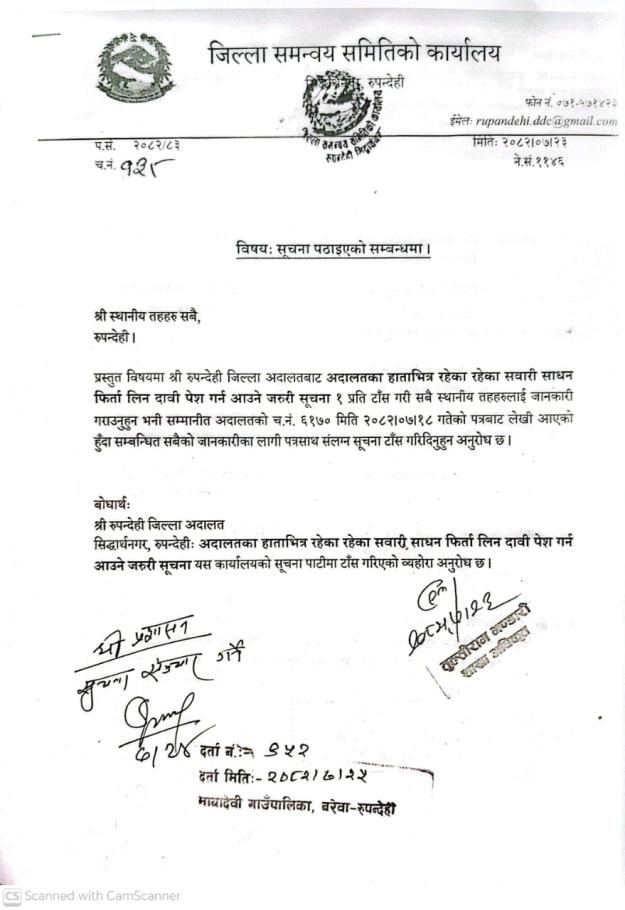 जिल्ला समन्वय समितिको कार्यालय
रुपन्देही
फोन नं. ०७१-५७१४२३
ईमेल: rupandehi.ddc@gmail.com
प.सं. २०८२/८३
मिति: २०८२।०७।२३
च.नं. १२८
ने.सं.११४६
विषय: सूचना पठाइएको सम्बन्धमा।
श्री स्थानीय तहहरु सबै,
रुपन्देही।
प्रस्तुत विषयमा श्री रुपन्देही जिल्ला अदालतबाट अदालतका हाताभित्र रहेका रहेका सवारी साधन
फिर्ता लिन दावी पेश गर्न आउने जरुरी सूचना १ प्रति टाँस गरी सबै स्थानीय तहहरुलाई जानकारी
गराउनुहुन भनी सम्मानीत अदालतको च.नं. ६१७० मिति २०८२।०७।१८ गतेको पत्रबाट लेखी आएको
हुँदा सम्बन्धित सबैको जानकारीका लागी पत्रसाथ संलग्न सूचना टाँस गरिदिनुहुन अनुरोध छ।
बोधार्थ:
श्री रुपन्देही जिल्ला अदालत
सिद्धार्थनगर, रुपन्देही: अदालतका हाताभित्र रहेका रहेका सवारी साधन फिर्ता लिन दावी पेश गर्न
आउने जरुरी सूचना यस कार्यालयको सूचना पाटीमा टाँस गरिएको व्यहोरा अनुरोध छ।
तुल्सीराम भण्डारी
शाखा अधिकृत
श्री प्रशासन
सूचना संञ्चार गर्ने
७/२४
दर्ता नं.:- ९५२
दर्ता मिति:- २०८२।७।२५
मायादेवी गाउँपालिका, बरेवा-रुपन्देही
CS Scanned with CamScanner